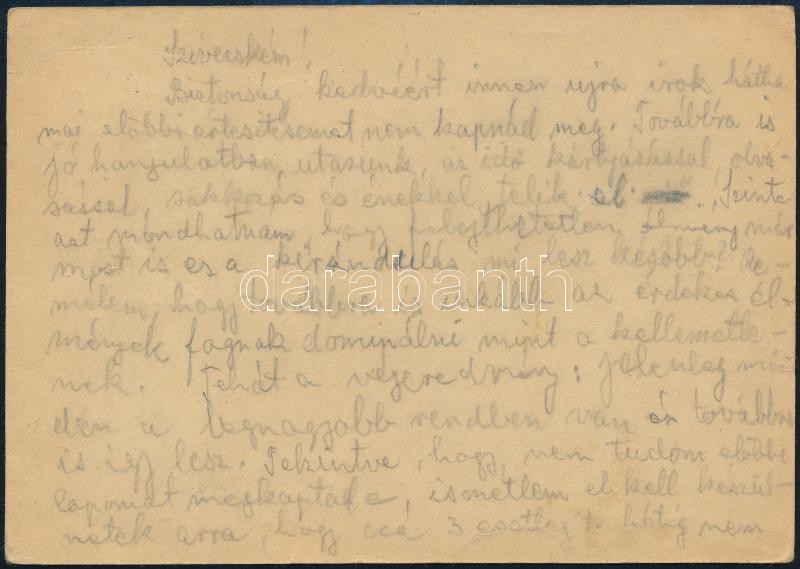 Szivecském!
Biztonság kedvéért innen ujra irok hátha
mai előbbi értesitésemet nem kapnád meg. Továbbra is
jó hangulatban utazunk, az idő kártyázással, olva-
sással, sakkozás és énekkel telik el. Szinte
azt mondhatnám, hogy felejthetetlen élmény már
most is ez a kirándulás, mi lesz később? Re-
mélem, hogy továbbra is inkább az érdekes él-
mények fognak dominálni mint a kellemetle-
nek. Tehát a végeredmény: jelenleg min
den a legnagyobb rendben van és továbbra
is igy lesz. Tekintve, hogy nem tudom előbbi
lapomat megkaptad e, ismétlem el kell készül-
netek arra, hogy cca 3 esetleg hétig nem
darabanth